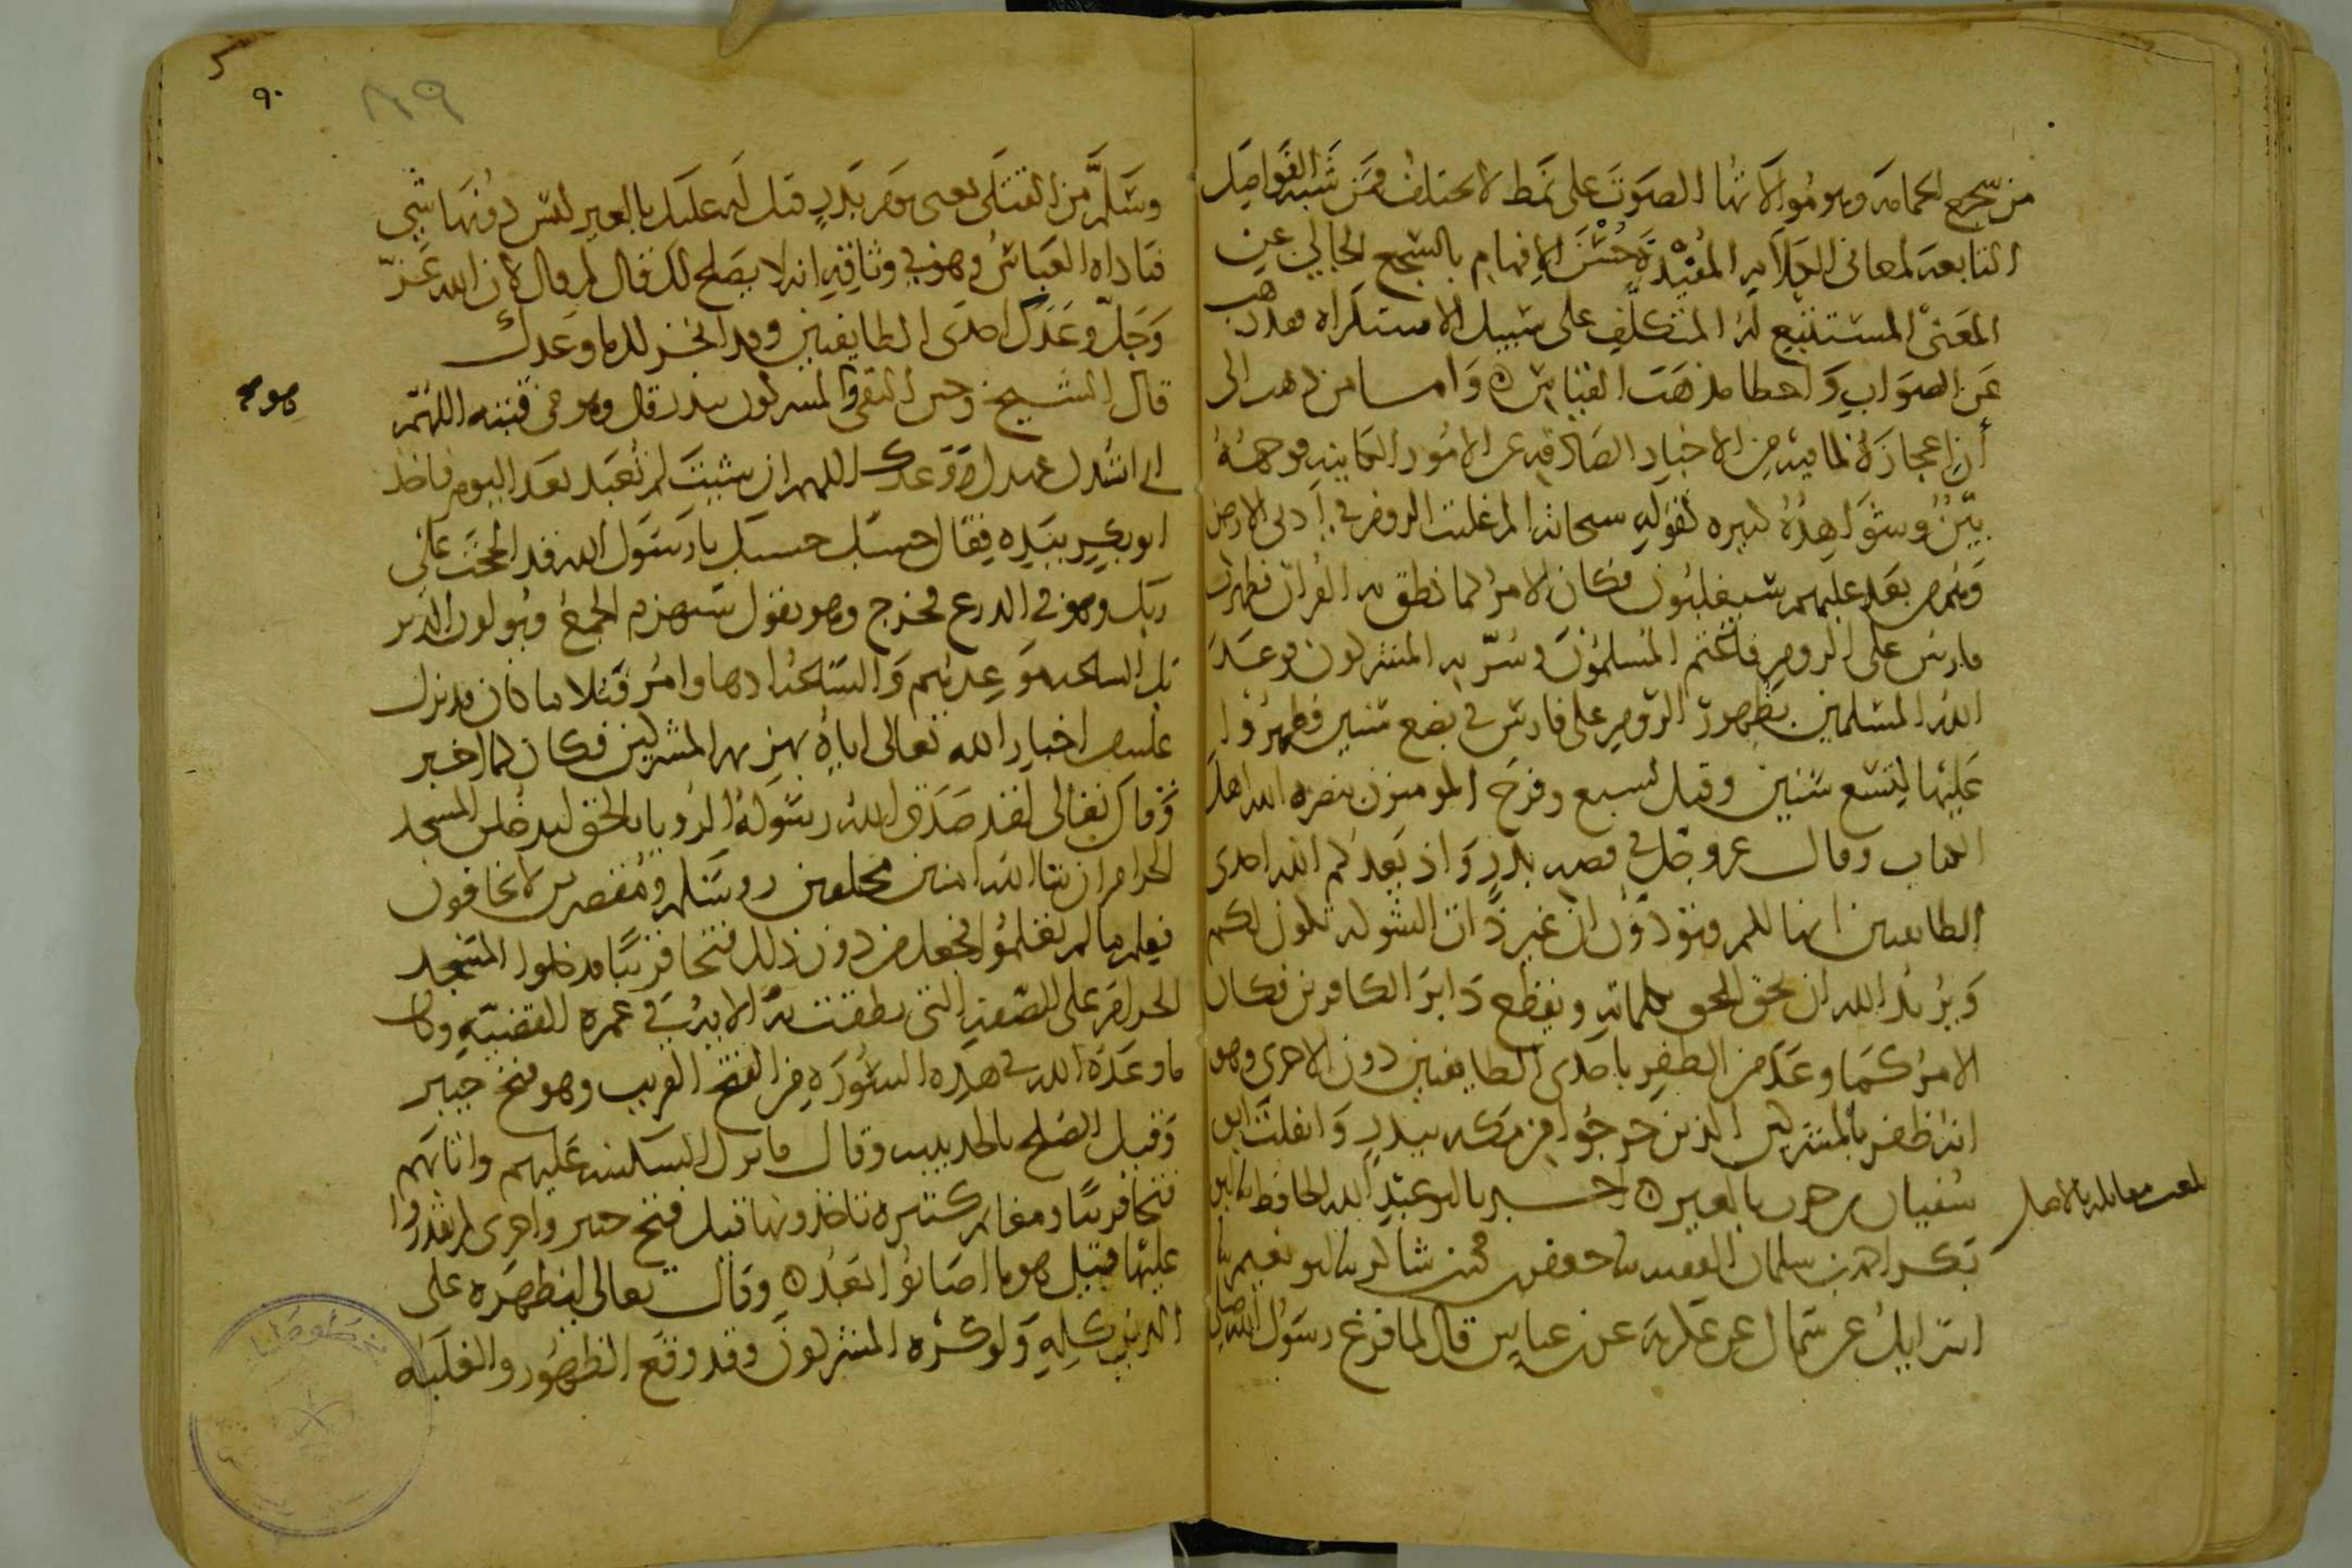 من سجع الحمامه وهو موالاتها الصوت على نمط لا يختلف فمن شبه الفواصل
التابعه لمعانى الكلام المفيدة حسن الافهام بالسجع الخالي عن
المعنى المستتبع له المتكلف على سبيل الاستكراه فقد ذهب
عن الصواب واخطا مذهب القياس وامسا من ذهب الى
أن اعجازه لما فيه من الاخبار الصادقه عن الامور الكاينه فوجهه
بيّن وشواهده كثيره كقوله سبحانه الم غلبت الروم في أدنى الارض
وهم من بعد غلبهم سيغلبون فكان الامر كما نطق به القران فظهرت
فارس على الروم فاغتم المسلمون وسرّ به المشركون فوعد
الله المسلمين بظهور الروم على فارس في بضع سنين فظهروا
عليها لتسع سنين وقيل لسبع وفرح المومنون بنصره الله اهل
الكتاب وقال عز وجل في قصه بدر واذ يعدكم الله احدى
الطايفتين انها لكم وتودّون ان غير ذات الشوكه تكون لكم
ويريد الله ان يحق الحق بكلماته ويقطع دابر الكافرين فكان
الامر كما وعد من الظفر باحدى الطايفتين دون الاخرى وهو
انه ظفر بالمشركين الذين خرجوا من مكه ببدر وانفلت ابو
سفيان بن حرب بالعير اخبرنا ابو عبد الله الحافظ نا ابو
بلغت مقابله بالاصل
بكر احمد بن سلمان الفقيه نا جعفر بن محمد بن شاكر نا ابو نعيم نا
اسرايل عن سماك عن عكرمه عن بن عباس قال لما فرغ رسول الله صلى
٩٠
٨٩
وسلم من القتلى يعنى يوم بدر قيل له عليك بالعير ليس دونها شي
فناداه العباس وهو في وثاقه انه لا يصلح لك قال لم قال لان الله عزّ
وجلّ وعدك احدى الطايفتين وقد انجز لك ما وعدك
قال الشيخ وحين التقى المشركون ببدر قال وهو في قبته اللهمّ
اني انشدك عهدك ووعدك اللهم ان شيت لم تعبد بعد اليوم فاخذ
ابو بكر بيده فقال حسبك حسبك يا رسول الله قد الححت على
ربك وهو في الدرع فخرج وهو يقول سيهزم الجمع ويولون الدبر
بل الساعه موعدهم والساعة ادها وامر قبلا ما كان قد نزل
عليه اخبار الله تعالى اياه بهزيمه المشركين فكان كما اخبر
وقال تعالى لقد صدق الله رسوله الرويا بالحق لتدخلن المسجد
الحرام ان شا الله امنين محلقين روسكم ومقصرين لا تخافون
فعلم ما لم تعلموا فجعل من دون ذلك فتحا قريبا فدخلوا المسجد
الحرام على الصفه التى نطقت به الايه في عمرة القضيّه وكان
ما وعده الله في هذه السورة من الفتح القريب وهو فتح خيبر
وقيل الصلح بالحديبيه وقال فانزل السكينه عليهم واثابهم
فتحا قريبا ومغانم كثيره تاخذونها قيل فتح خيبر واخرى لم تقدروا
عليها قيل هو ما اصابوا بعد وقال تعالى ليظهره على
الدين كله ولو كره المشركون وقد وقع الظهور والغلبه